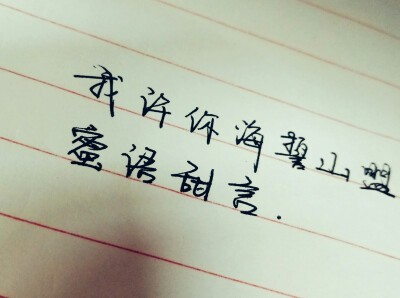 我许你海誓山盟
蜜语甜言.